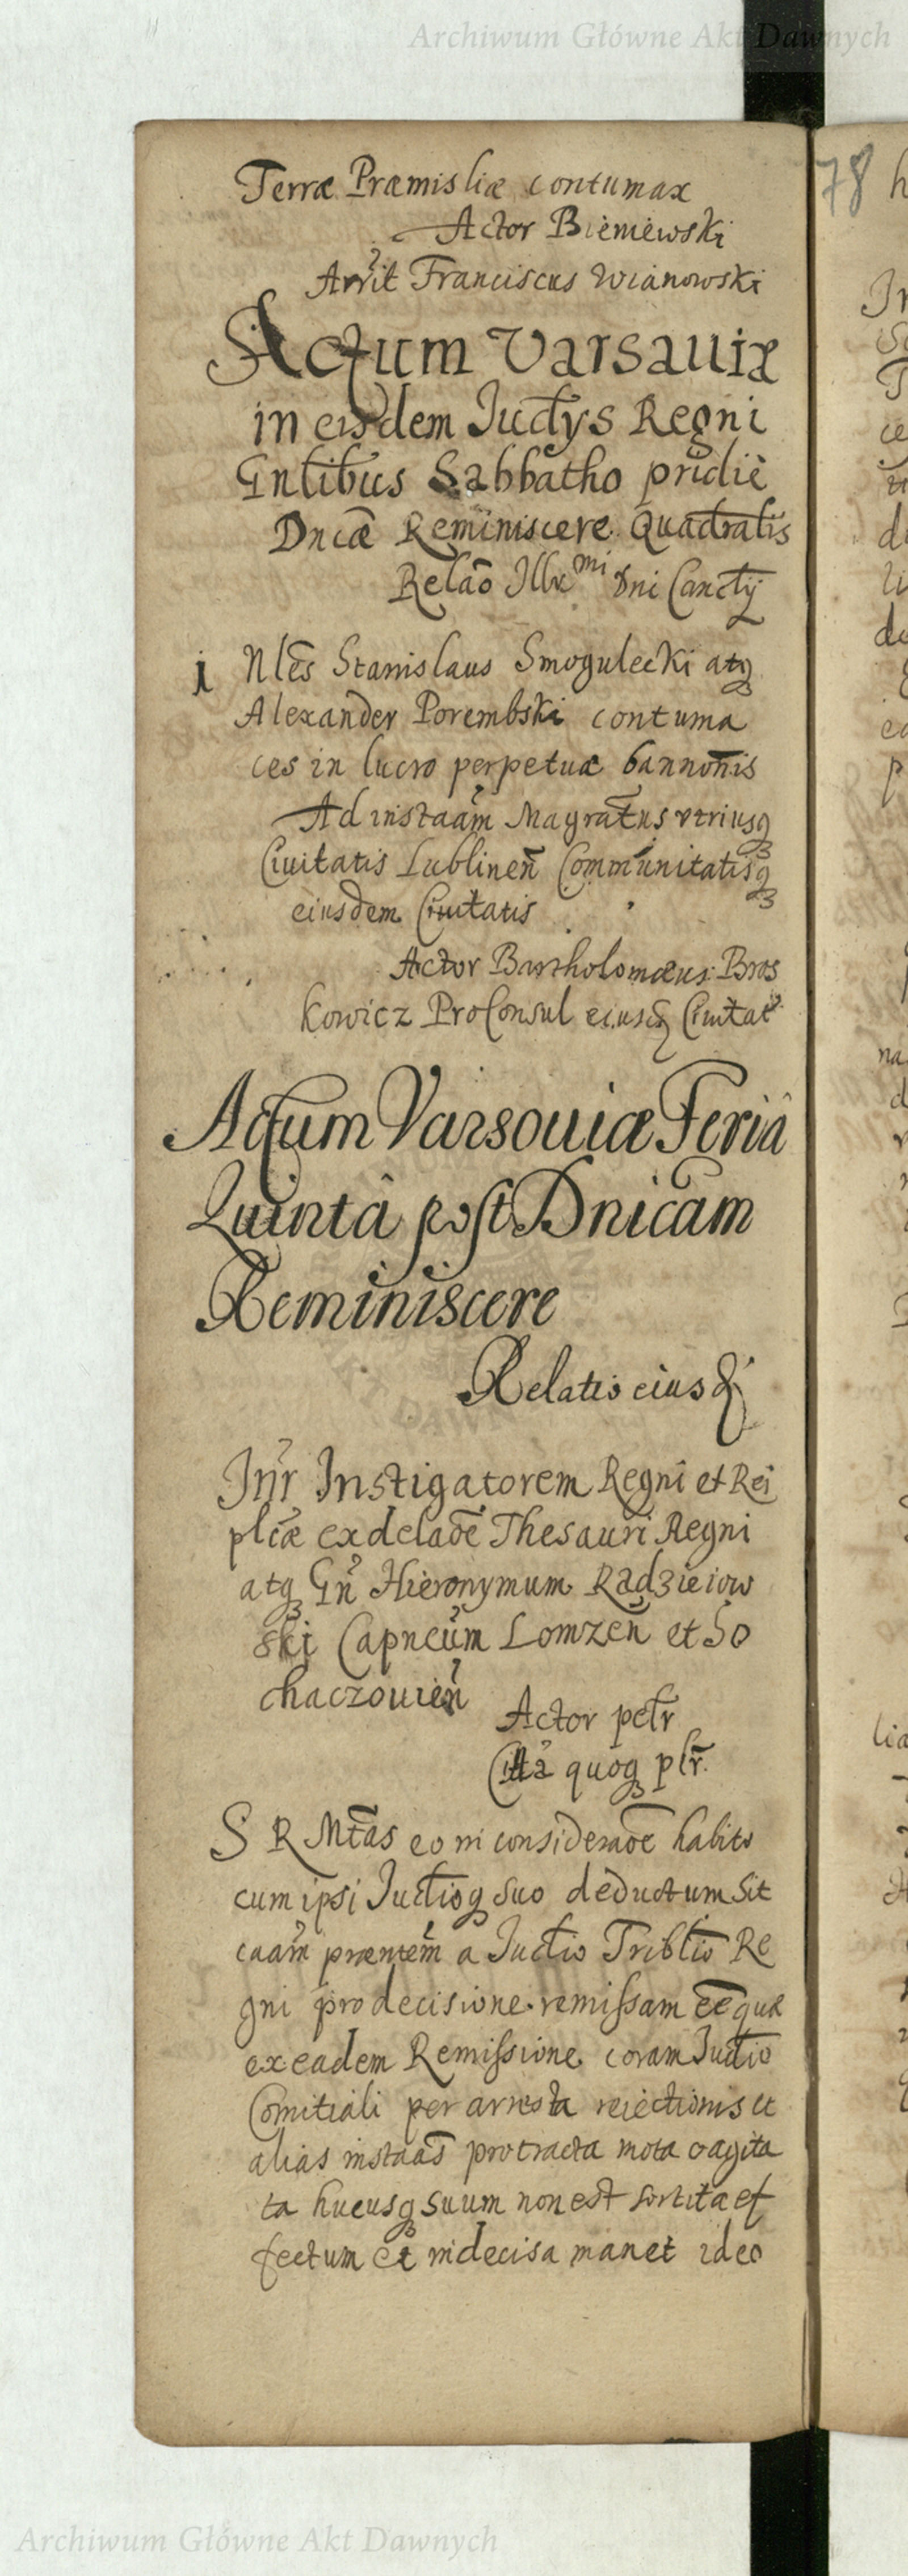 Archiwum Główne Akt Dawnych
Terræ Præmisliæ contumax
Actor Bieniewski
Arr̃it Franciscus Wianowski
78
Actum Varsauiæ
in eisdem Iudtÿs Regni
Gnlibus Sabbatho pridie
Dnicæ Reminiscere Quadralis
Relaõ Illr mi Dni Canctÿ
i Nles̃ Stanislaus Smogulecki atq3
Alexander Porembski contuma
ces in lucro perpetuæ bannonĩs
Ad instaam̃ Magratus̃ vtriusq3
Ciuitatis Lublineñ Communitatisq3
eiusdem Ciuitatis
Actor Bartholomæus Bros
kowicz ProConsul eiusd Ciuitat
Actum Varsouiæ Feriâ
Quintâ post Dnicam
Reminiscere
Relatio eiusd
Inr̃ Instigatorem Regni et Rei
plicæ ex delaoẽ Thesauri Regni
atq3 Gñ Hieronymum Radzieiow
ski Capneum̃ Lomzeñ et So
chaczouieñ
Actor petr̃
quoq3 ptr̃
S R Mtãs eo in consideraoẽ habito
cum ipsi Iudtioq3 suo deductum sit
caam̃ præntem̃ a Iudtio Tribltio Re
gni pro decisione remissam eẽ quæ
ex eadem Remissione coram Iudtio
Comitiali per arresta reiectionis et
alias instaas̃ protracta mota cagita
ta hucusq3 suum non est sortita ef
fectum et indecisa manet ideo
Archiwum Główne Akt Dawnych